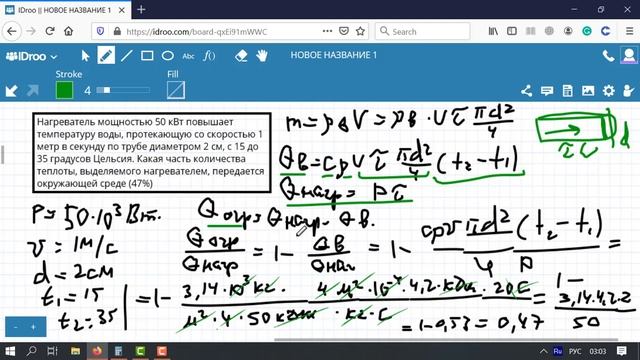 IDroo || НОВОЕ НАЗВАНИЕ 1
https://idroo.com/board-qxEi91mWWC
IDroo
НОВОЕ НАЗВАНИЕ 1
Stroke
Fill
4
Нагреватель мощностью 50 кВт повышает
температуру воды, протекающую со скоростью 1
метр в секунду по трубе диаметром 2 см, с 15 до
35 градусов Цельсия. Какая часть количества
теплоты, выделяемого нагревателем, передается
окружающей среде (47%)
m=ρΔV=ρв·vτ πd²/4
d
τv
Qв=cρvτ πd²/4 (t₂-t₁)
Qнагр=Pτ
P=50·10³Вт.
Qогр=Qнагр-Qв.
v=1м/с
Qогр/Qнагр=1-Qв/Qнаг=1-cρv πd²(t₂-t₁)/4P=
d=2см
t₁=15
t₂=35
=1-
=1-0,53=0,47
1-3,14·4,2·2/50
RU
РУС
03:03